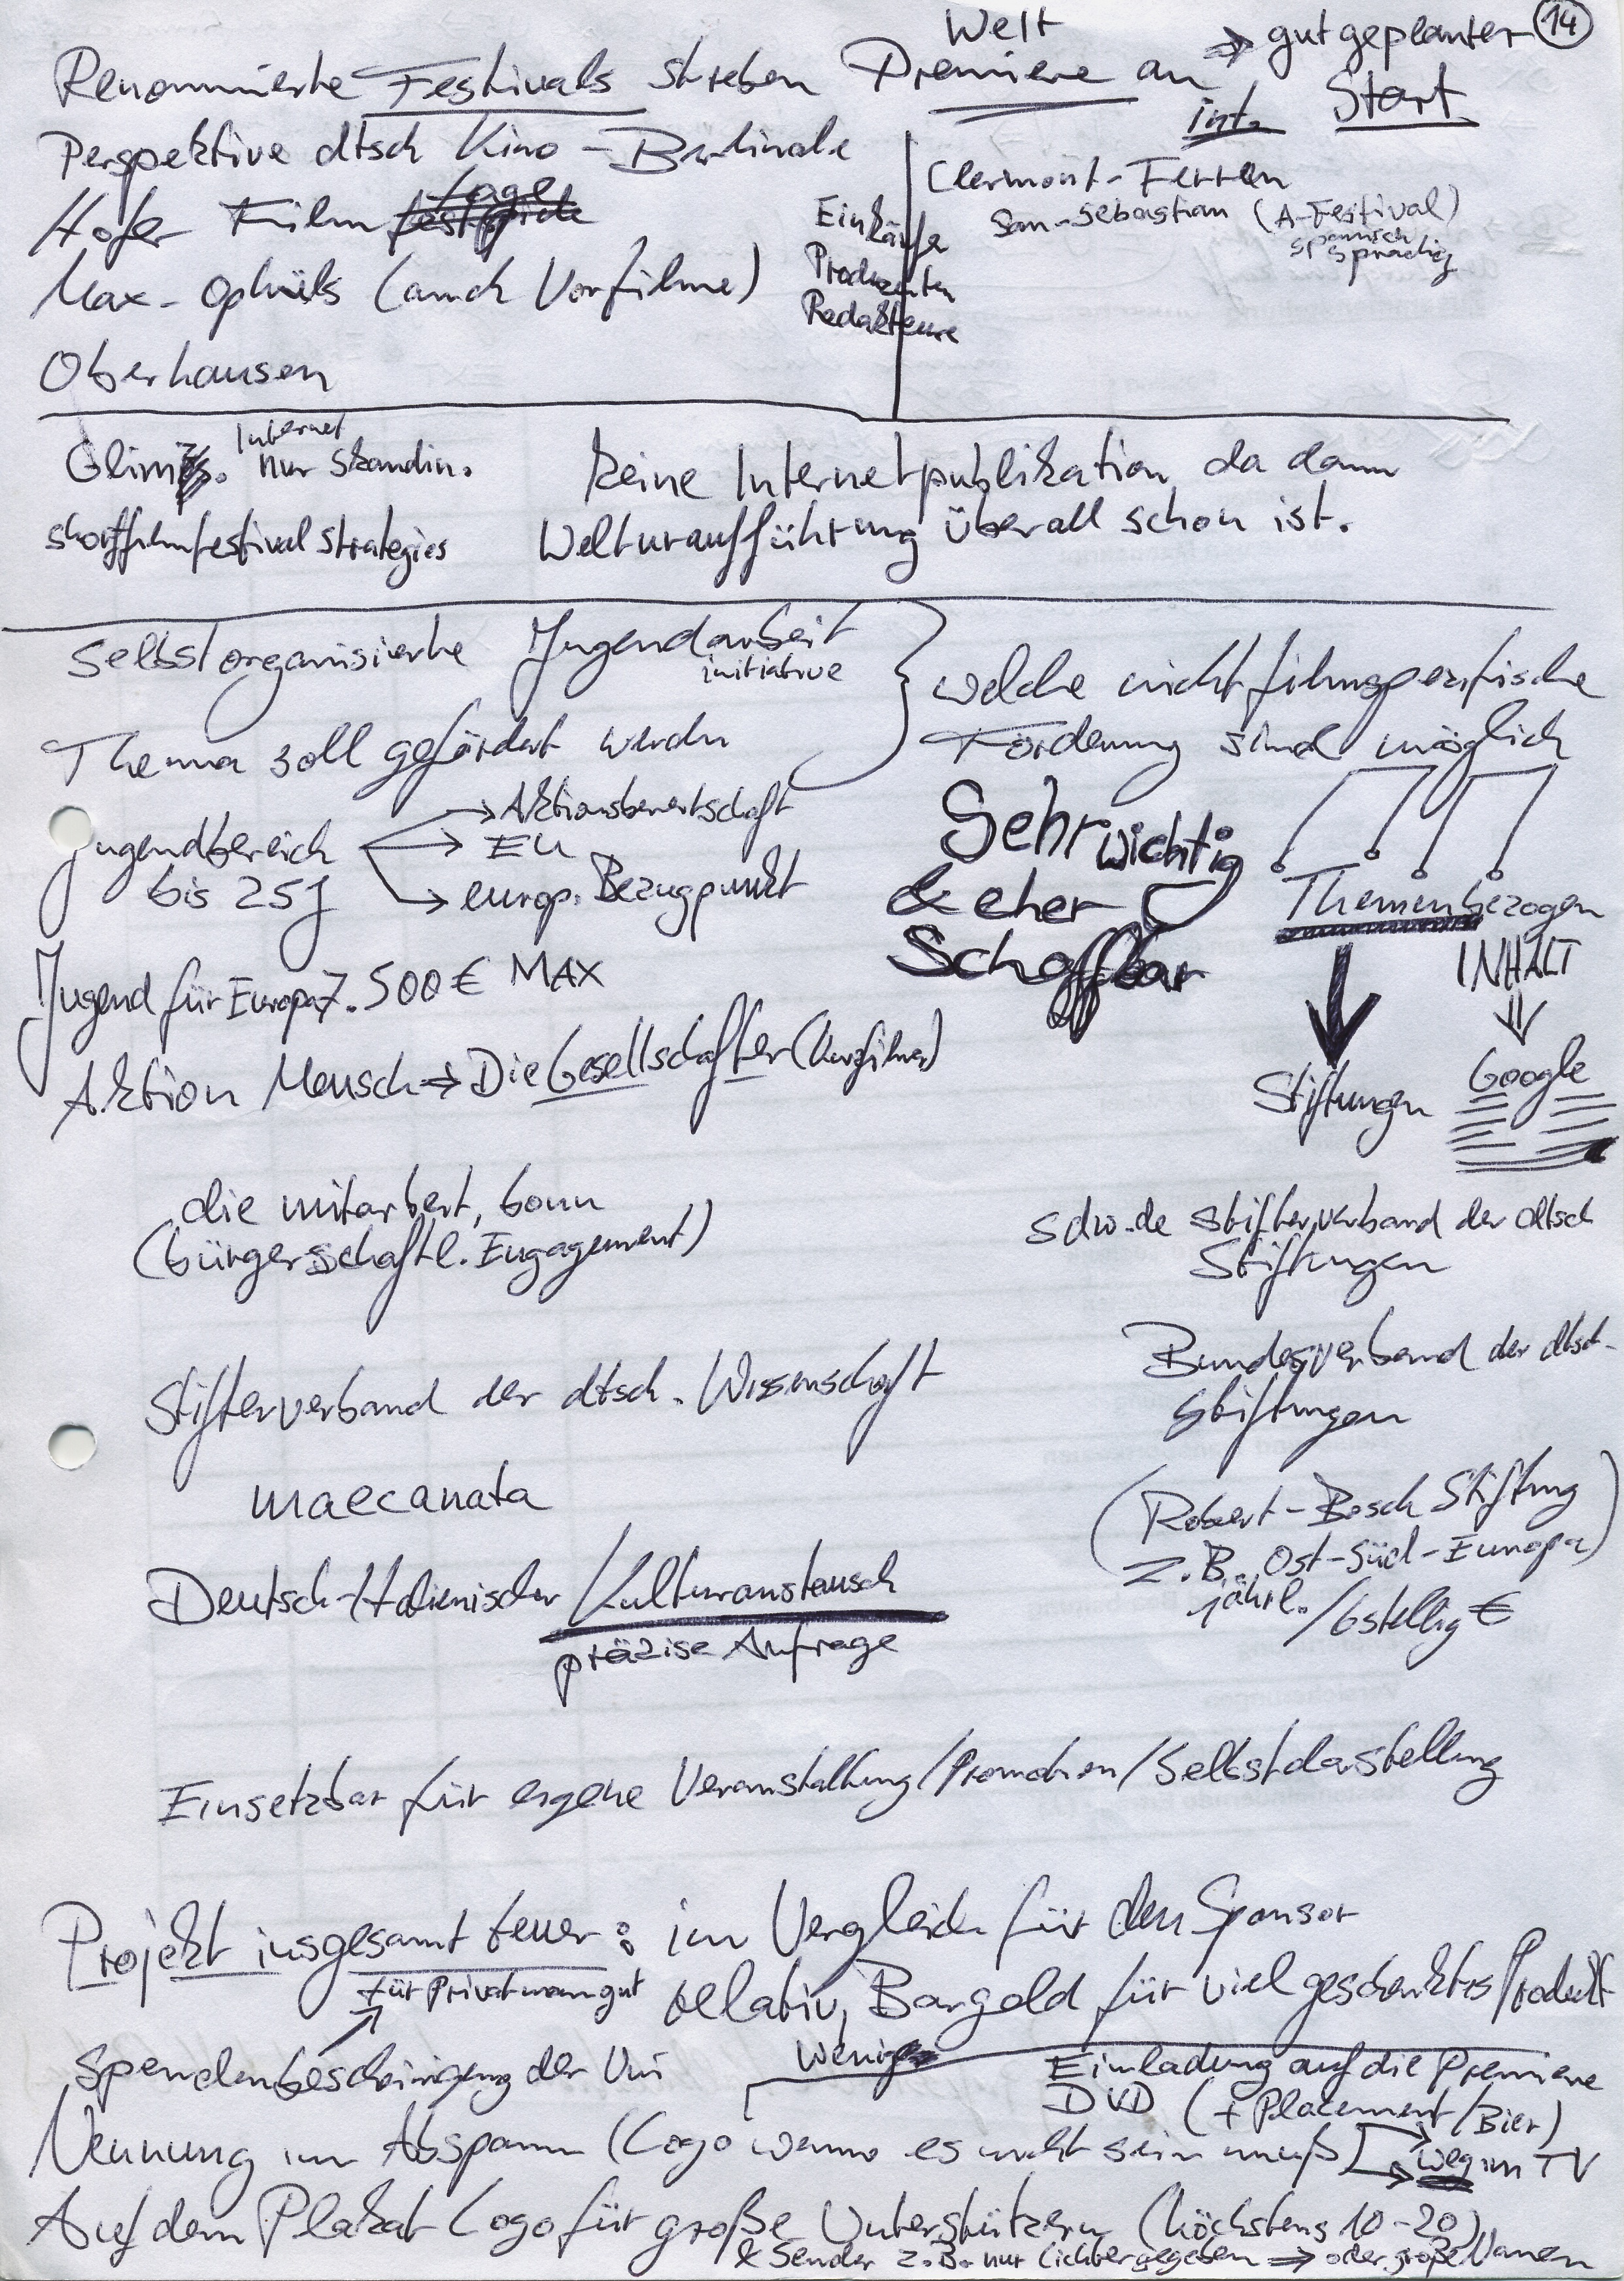 14
Welt
Renommierte Festivals streben Premiere an ⇒ gut geplanter
int. Start
Perspektive dtsch Kino - Berlinale
Hofer Film tage
Max-Ophüls (auch Vorfilme)
Oberhausen
Einkäufe
Produzenten
Redakteure
Clermont-Ferran
San-Sebastian (A-Festival)
spanisch
sprachig
Internet
nur Skandin.
shortfilmfestival strategies
keine Internetpublikation, da dann
Welturaufführung überall schon ist.
Selbstorganisierte Jugendarbeit
initiative
Thema soll gefördert werden
welche nichtfilmspezifische
Förderung sind möglich
Jugendbereich
bis 25J
→ Aktionsbereitschaft
→ EU
→ europ. Bezugpunkt
Sehr wichtig
& eher
Schaffbar
Themenbezogen
INHALT
Stiftungen
Google
Jugend für Europa 7.500€ MAX
Aktion Mensch ⇒ Die Gesellschafter (Kurzfilme)
die mitarbeit, bonn
(bürgerschaftl. Engagement)
sdw.de Stifterverband der dtsch
Stiftungen
Stifterverband der dtsch. Wissenschaft
Bundesverband der dtsch.
Stiftungen
maecanata
(Robert-Bosch Stiftung
z.B. Ost-Süd-Europa)
jährl. / 6stellig €
Deutsch-Italienischer Kulturaustausch
präzise Anfrage
Einsetzbar für eigene Veranstaltung/Promotion/Selbstdarstellung
Projekt insgesamt teuer: im Vergleich für den Sponsor
relativ, Bargeld für viel geschenktes Produkt
für Privatmann gut
Spendenbescheinigung der Uni
weniger
Einladung auf die Premiere
DVD (+ Placement/Bier)
Nennung im Abspann (Logo wenns es nicht sein muß)
weg im TV
Auf dem Plakat Logo für große Unterstützern (höchstens 10-20)
& Sender z.B. nur Lichter gegeben ⇒ oder große Namen